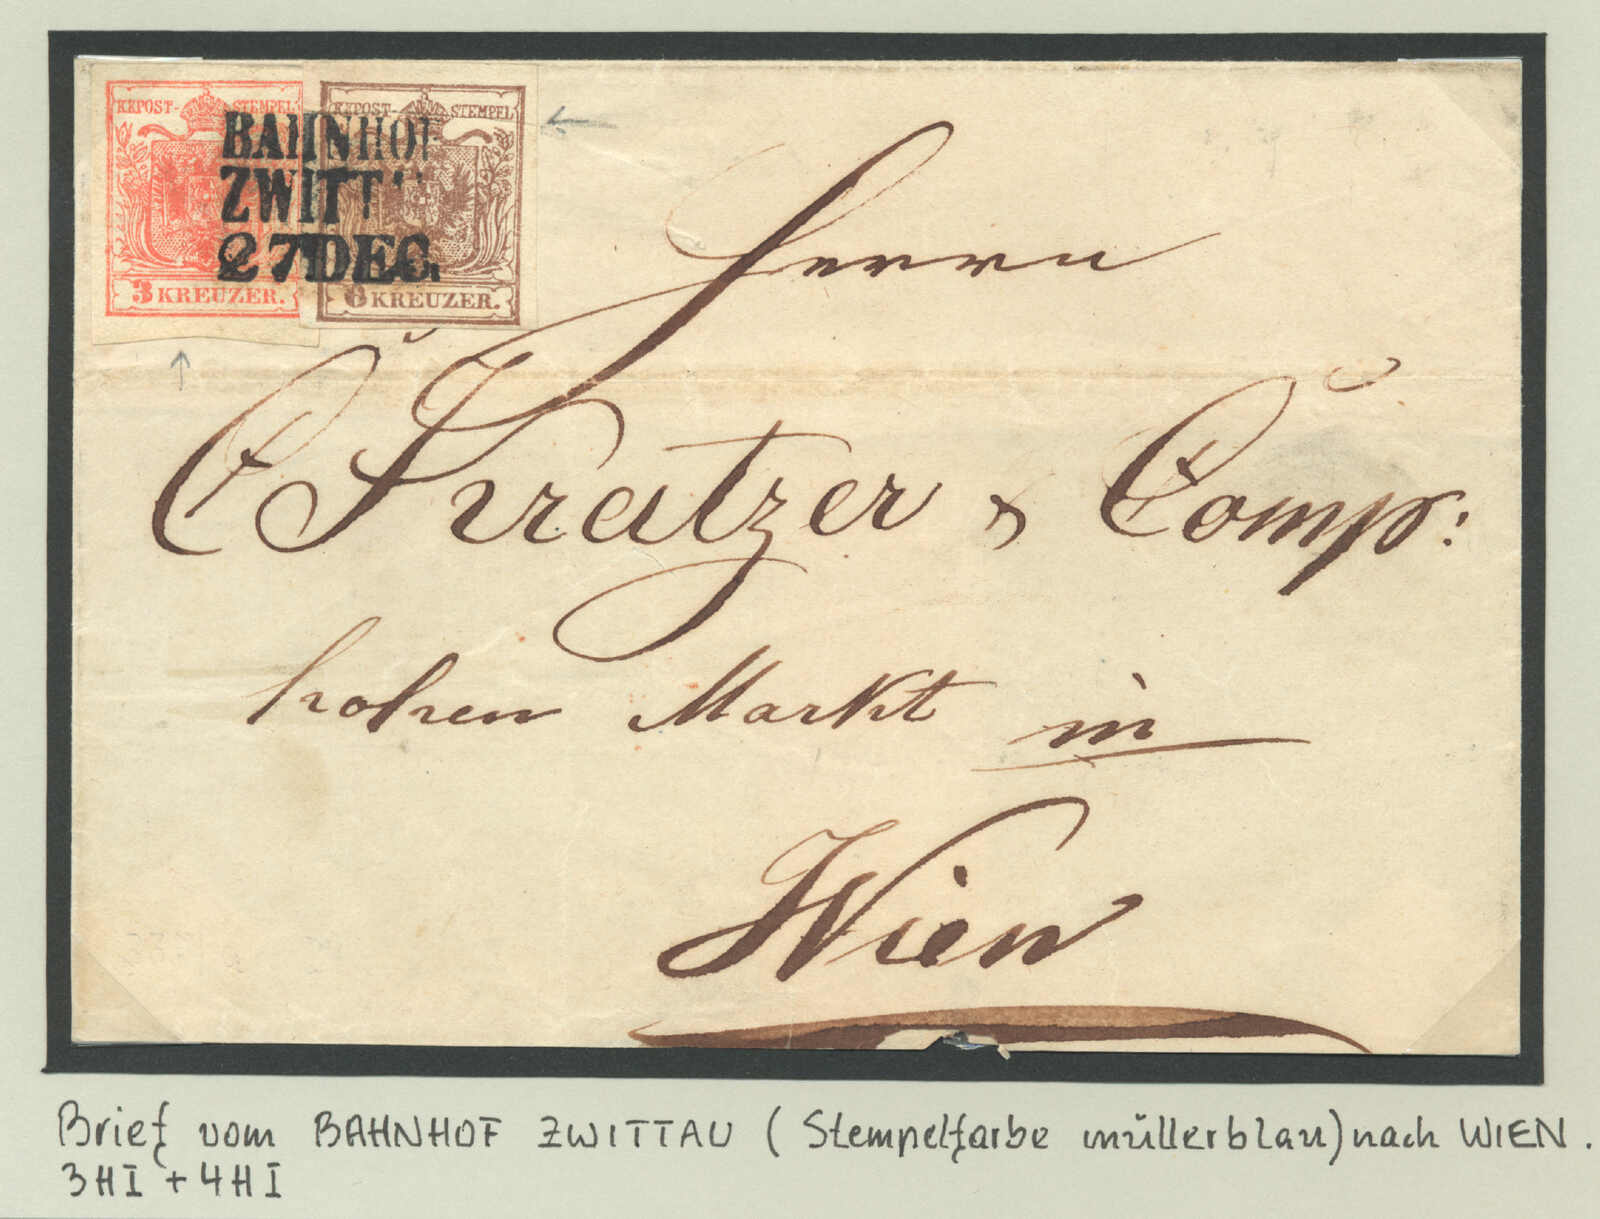 KKPOST-STEMPEL KKPOST-STEMPEL
BAHNHOF
ZWITT
27 DEC.
3 KREUZER. 6 KREUZER.
Herrn
Kratzer & Comp:
hohen Markt in
Wien
Brief vom BAHNHOF ZWITTAU (Stempelfarbe müllerblau) nach WIEN.
3HI + 4HI